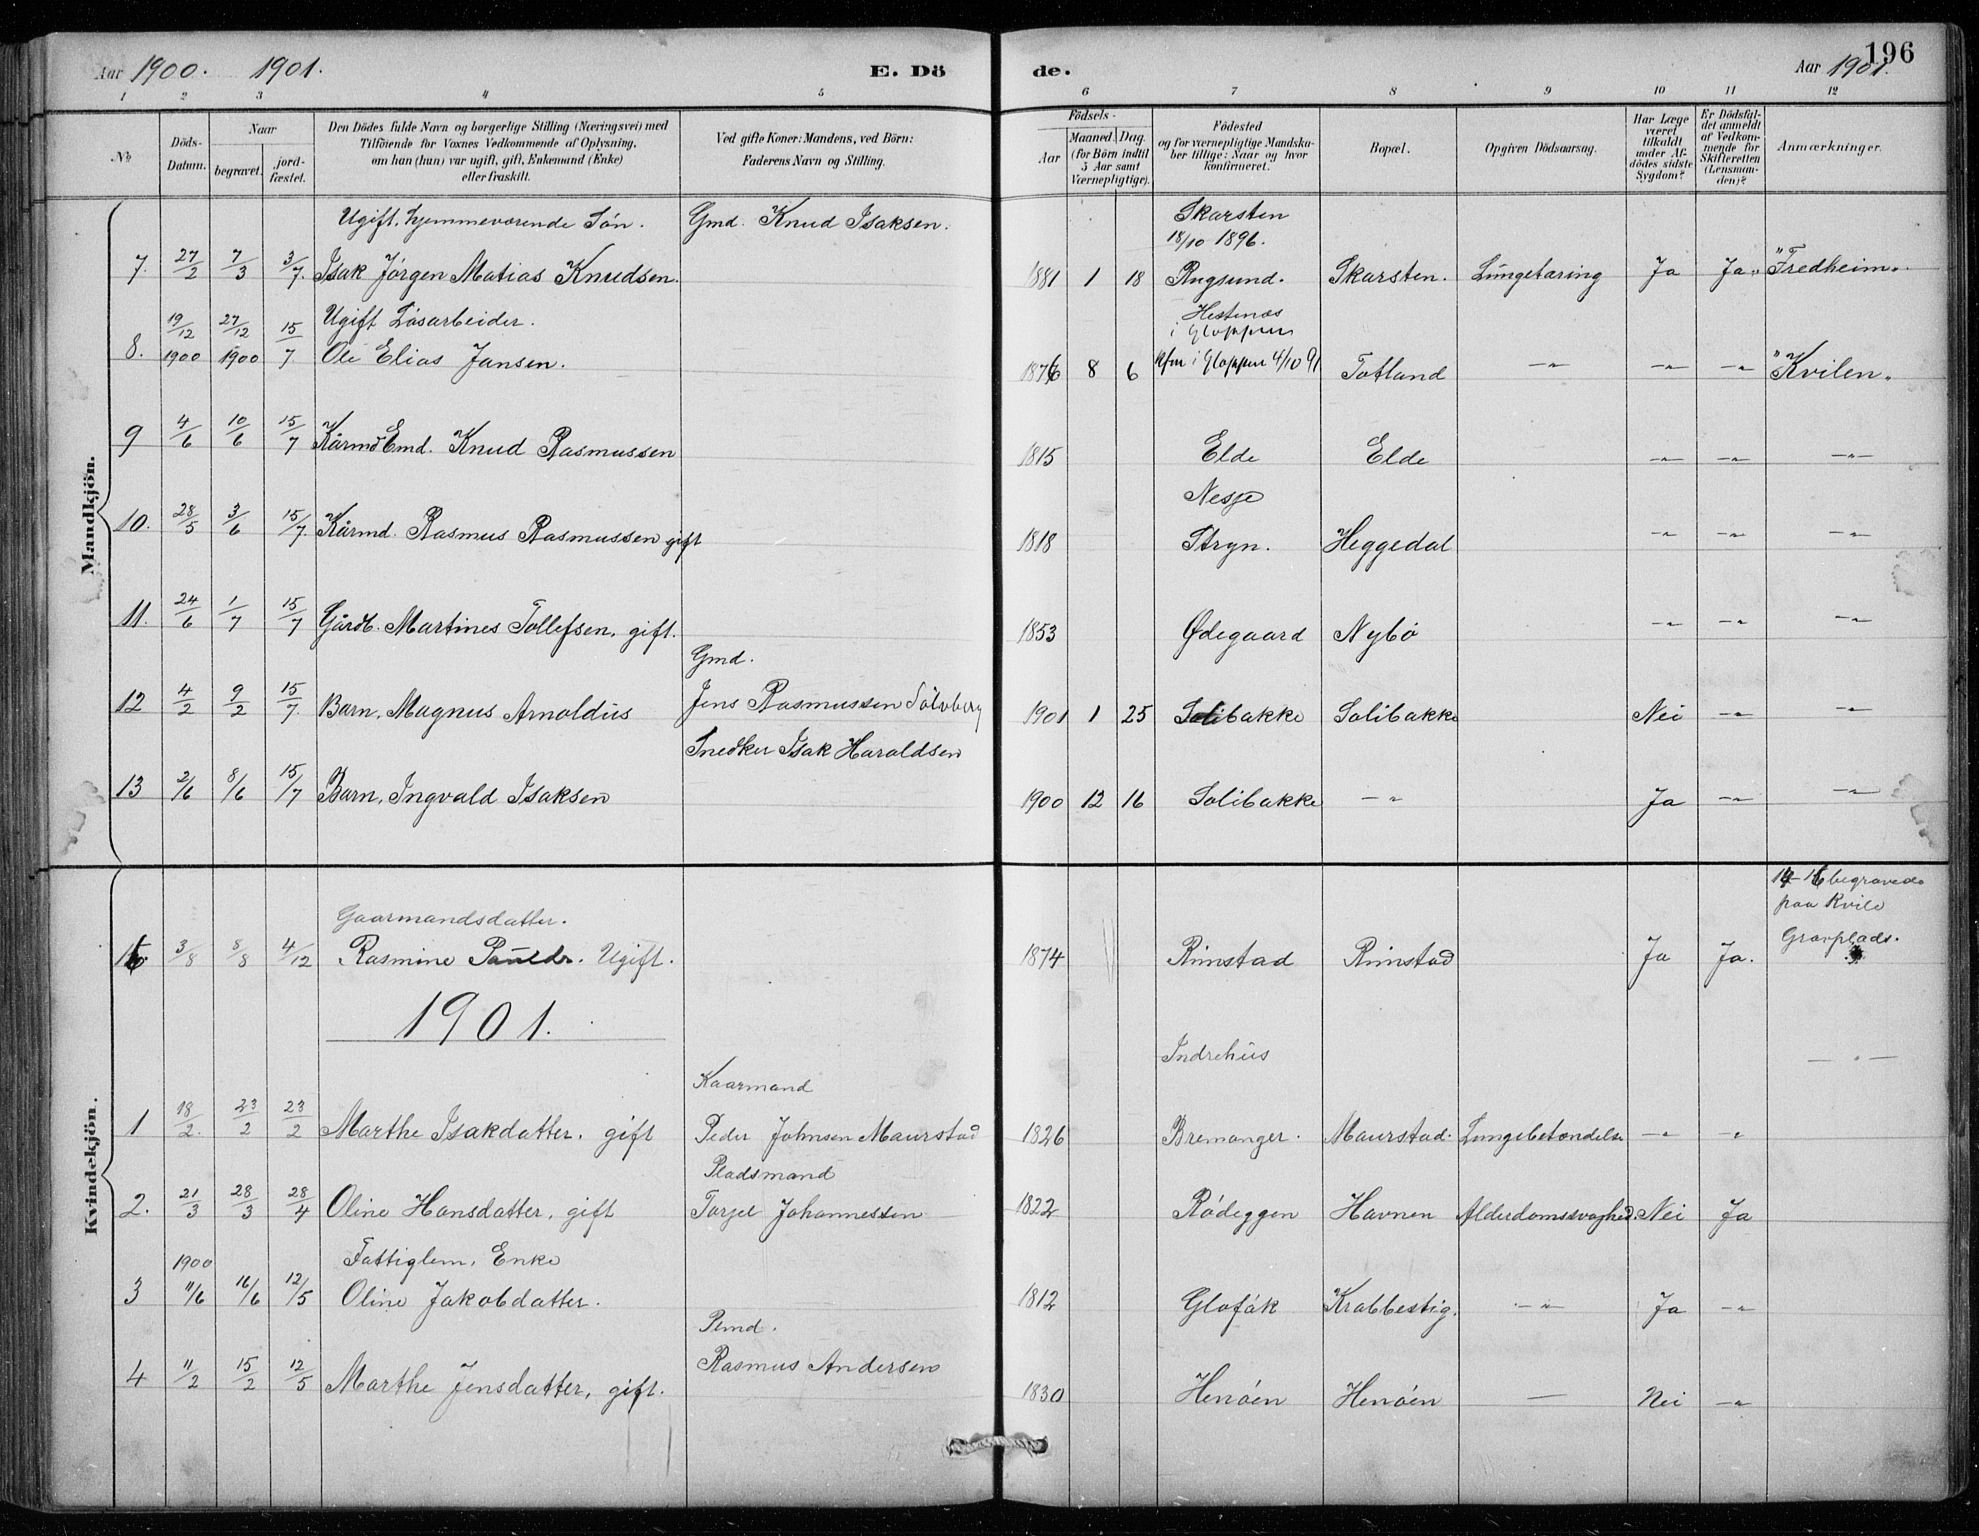 Aar 1900. 1901. E. Dö de. Aar 1901. 196
1 2 3 4 5 6 7 8 9 10 11 12
№ Döds-Datum. Naar begravet. jord-fæstet. Den Dödes fulde Navn og borgerlige Stilling (Næringsvei) med Tilföiende for Voxnes Vedkommende af Oplysning, om han (hun) var ugift, gift, Enkemand (Enke) eller fraskilt. Ved gifte Koner: Mandens, ved Börn: Faderens Navn og Stilling. Födsels- Aar Maaned. Dag. (for Börn indtil 5 Aar samt Værnepligtige). Födested og for værnepligtige Mandska-ber tillige: Naar og hvor konfirmeret. Bopæl. Opgiven Dödsaarsag. Har Læge været tilkaldt under Af-dödes sidste Sygdom? Er Dödsfal-det anmeldt af Vedkom-mende for Skifteretten (Lensman-den)? Anmærkninger.
Mandkjön.
Ugift, hjemmeværende Sön. Gmd. Knud Isaksen. Skarsten
18/10 1896.
7. 27/2 7/3 3/7. Isak Jörgen Matias Knudsen. 1881 1 18 Rugsund. Skarsten. Lungetæring Ja Ja "Fredheim".
19/12 27/12 15/7 Ugift Lösarbeider. Hestenæs
i Gloppen
8. 1900 1900 Ole Elias Jansen. 1876 8 6 kfm i Gloppen 4/10 91 Totland —"— —"— —"— "Kvilen"
9 4/6 10/6 15/7 Kårmd Emd. Knud Rasmussen 1815 Elde Elde —"— —"— —"—
Nesje
10. 28/5 3/6 15/7. Kårmd. Rasmus Rasmussen gift 1818 Stryn. Heggedal —"— —"— —"—
11. 24/6 1/7 15/7 Gårdb. Martines Tollefsen, gift. 1853 Ødegaard Nybö —"— —"— —"—
Gmd.
12 4/2 9/2 15/7. Barn, Magnus Arnoldus Jens Rasmussen Sölvberg 1901 1 25 Solibakke Solibakke Nei —"— —"—
Snedker Isak Haraldsen
13 2/6 8/6 15/7 Barn, Ingvald Isaksen 1900 12 16 Solibakke —"— Ja —"— —"—
Kvindekjön.
14-16 begravede
paa Kvile
Gaarmandsdatter. Gravplads.
16. 3/8 8/8 4/12 Rasmine Paulsdr. Ugift. 1874 Rimstad Rimstad Ja Ja.
1901.
Indrehus —"—
Kaarmand
1 18/2. 23/2 23/2 Marthe Isakdatter. gift Peder Johnsen Maurstad 1826 Bremanger. Maurstad. Lungebetændelse —"— —"—
Pladsmand
2. 21/3 28/3 28/4 Oline Hansdatter, gift Torgel Johannessen 1822 Rödeggen Havnen Alderdomssvaghed. Nei Ja
1900 Fattiglem, Enke
3 11/6 16/6 12/5 Oline Jakobdatter. 1812 Glofåk Krabbestig. —"— Ja —"—
Pmd.
Rasmus Andersen
4 11/2 15/2 12/5 Marthe Jensdatter, gift. 1830 Henöen Henöen — Nei —"—